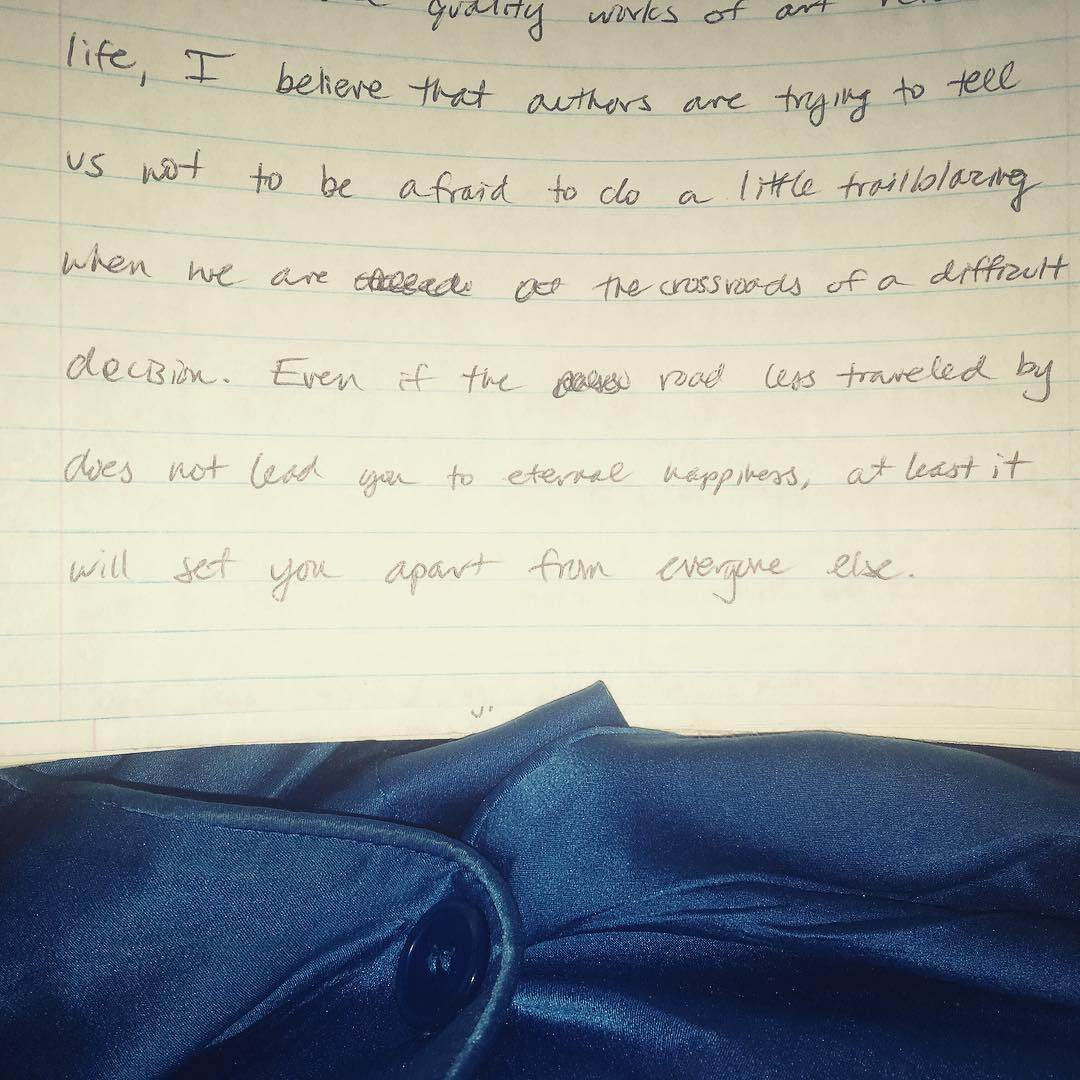 quality works of art
life, I believe that authors are trying to tell
us not to be afraid to do a little trailblazing
when we are at the crossroads of a difficult
decision. Even if the road less traveled by
does not lead you to eternal happiness, at least it
will set you apart from everyone else.